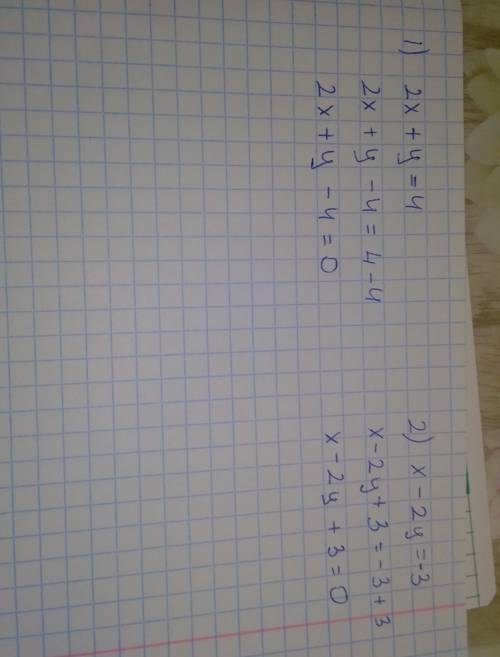 1) 2x + y = 4
2x + y - 4 = 4 - 4
2x + y - 4 = 0
2) x - 2y = -3
x - 2y + 3 = -3 + 3
x - 2y + 3 = 0